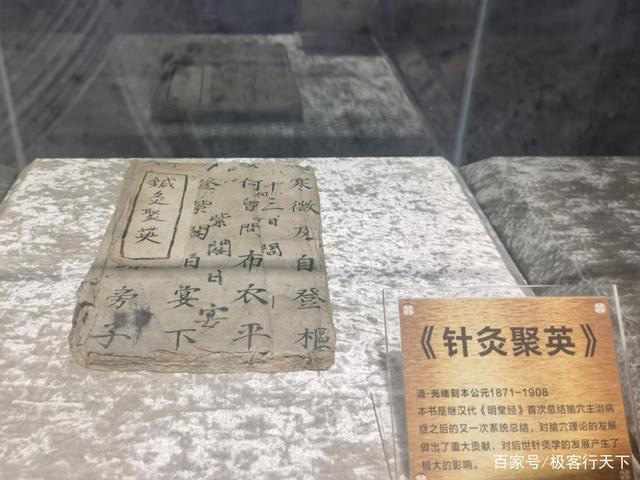 鍼灸聚英
寒微及自登樞
十三日閣
何曾閣布衣平
紫閣日宴
紫閣日宴下
旁子
《针灸聚英》
清·光绪刻本公元1871-1908
本书是继汉代《明堂经》首次总结腧穴主治病
症之后的又一次系统总结，对腧穴理论的发展
做出了重大贡献，对后世针灸学的发展产生了
极大的影响。
百家号/极客行天下